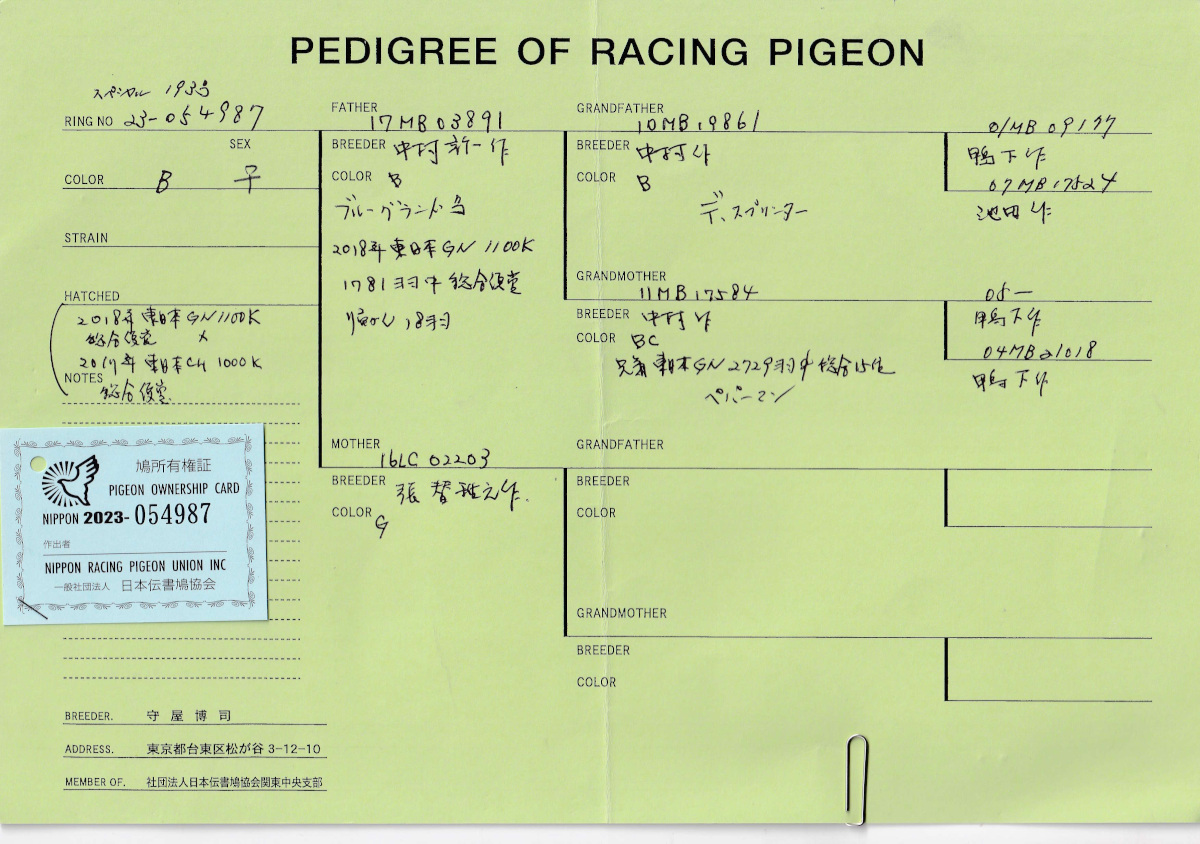 PEDIGREE OF RACING PIGEON
スペシャル 193号
RING NO 23-054987
SEX
COLOR B 〒
STRAIN
HATCHED
2018年東日本GN1100K
総合優勝 ×
2017年東日本CH 1000K
NOTES
総合優勝
鳩所有権証
PIGEON OWNERSHIP CARD
NIPPON 2023-054987
作出者
NIPPON RACING PIGEON UNION INC
一般社団法人 日本伝書鳩協会
BREEDER. 守屋博司
ADDRESS. 東京都台東区松が谷 3-12-10
MEMBER OF. 社団法人日本伝書鳩協会関東中央支部
FATHER
17MB03891
BREEDER 中村新一作
COLOR B
ブルーグランド号
2018年東日本GN 1100K
1781羽中 総合優勝
18羽
MOTHER
16LC 02203
BREEDER 張替雅之作.
COLOR G
GRANDFATHER
10MB19861
BREEDER 中村作
COLOR B
デ、スプリンター
GRANDMOTHER
11MB17584
BREEDER 中村作
COLOR BC
東日本GN 2729羽中総合15位
ペパーマン
GRANDFATHER
BREEDER
COLOR
GRANDMOTHER
BREEDER
COLOR
01MB 09177
鴨下作
07MB17524
池田作
05-
鴨下作
04MB21018
鴨下作